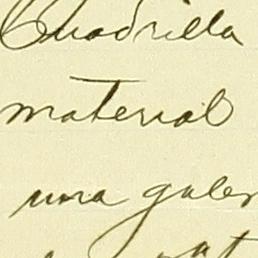 Cuadrilla
material
una galer